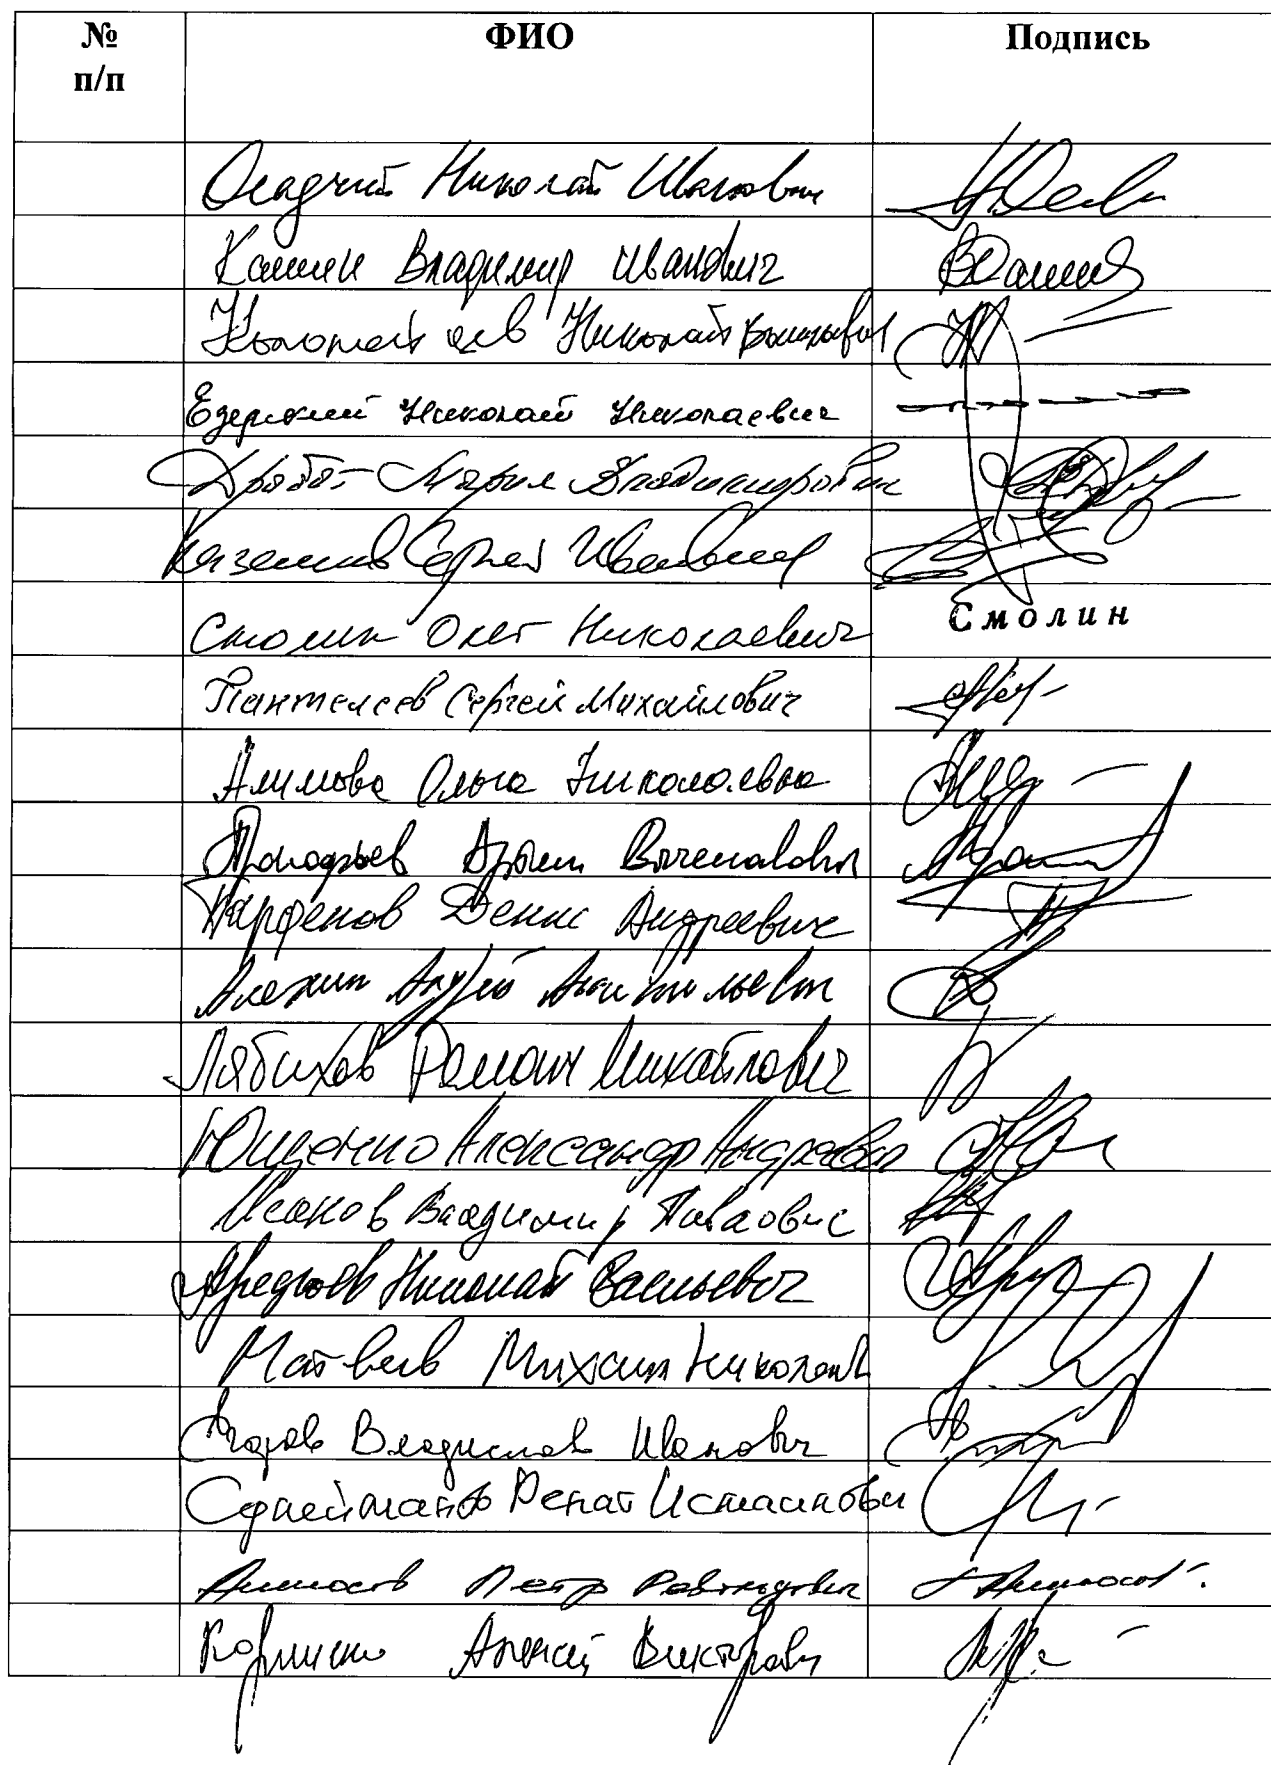 № ФИО Подпись
п/п
Осадчий Николай Иванович
Кашин Владимир Иванович
Коломейцев Николай Васильевич
Езерский Николай Николаевич
Дробот Мария Владимировна
Казанков Сергей Иванович
Смолин Олег Николаевич Смолин
Пантелеев Сергей Михайлович
Алимова Ольга Николаевна
Прокофьев Артем Вячеславович
Парфенов Денис Андреевич
Алехин Андрей Анатольевич
Лябихов Роман Михайлович
Ющенко Александр Андреевич
Исаков Владимир Павлович
Арефьев Николай Васильевич
Матвеев Михаил Николаевич
Егоров Владислав Иванович
Сулейманов Ренат Исмаилович
Аммосов Петр Револьдович
Корниенко Алексей Викторович